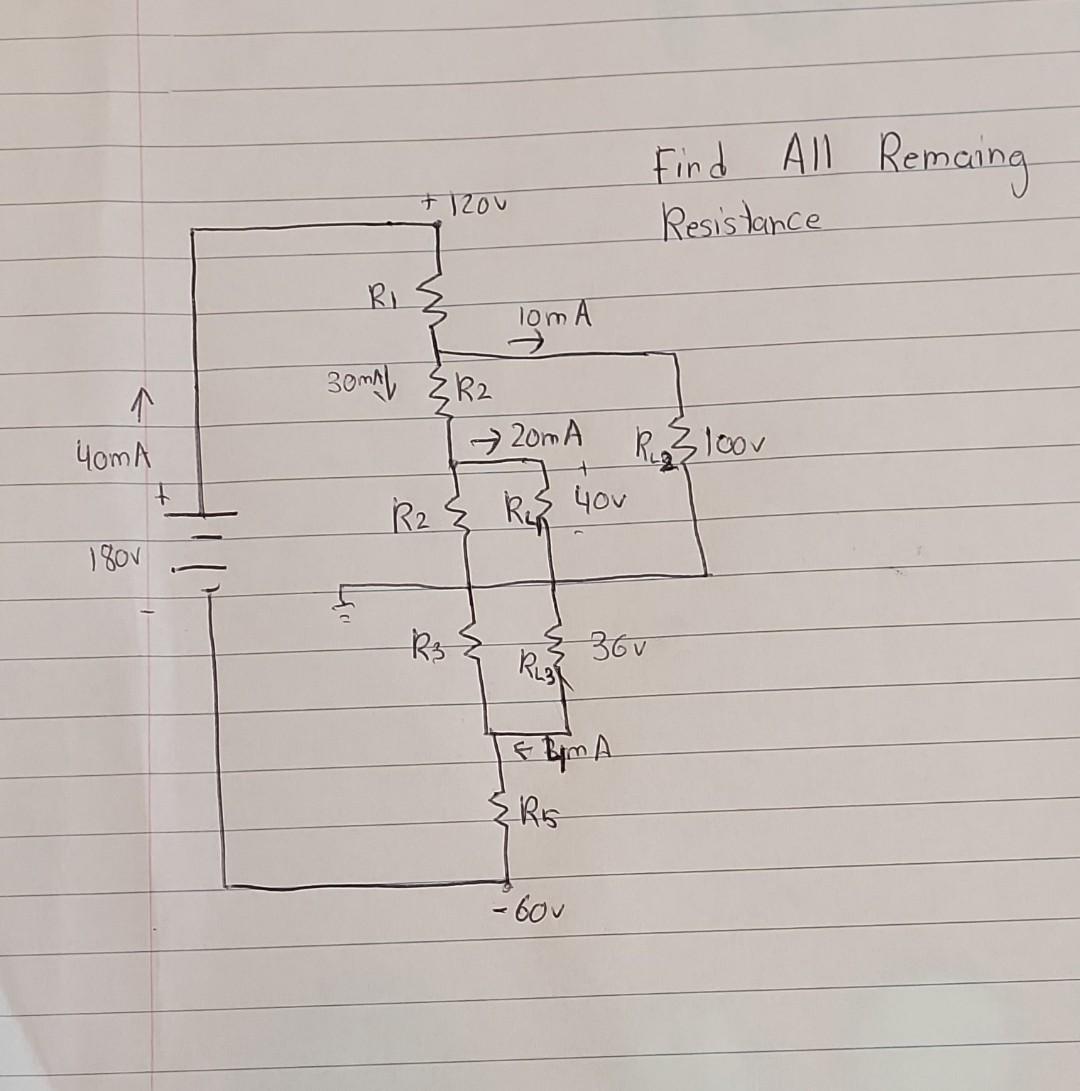 Find All Remaing
Resistance
+ 120v
R1
10mA
30mA
R2
40mA
20mA
RL2
100v
+
+
R2
40v
180v
-
-
R3
RL3
36v
mA
-60v